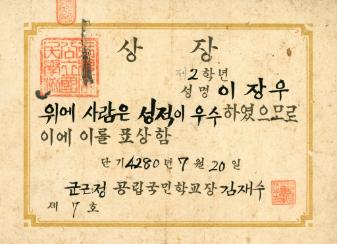 상장
제2학년
성명 이장우
위에 사람은 성적이 우수하였으므로
이에 이를 표상함
단기4280년 7월 20일
공립국민학교장 김재수
제 7 호